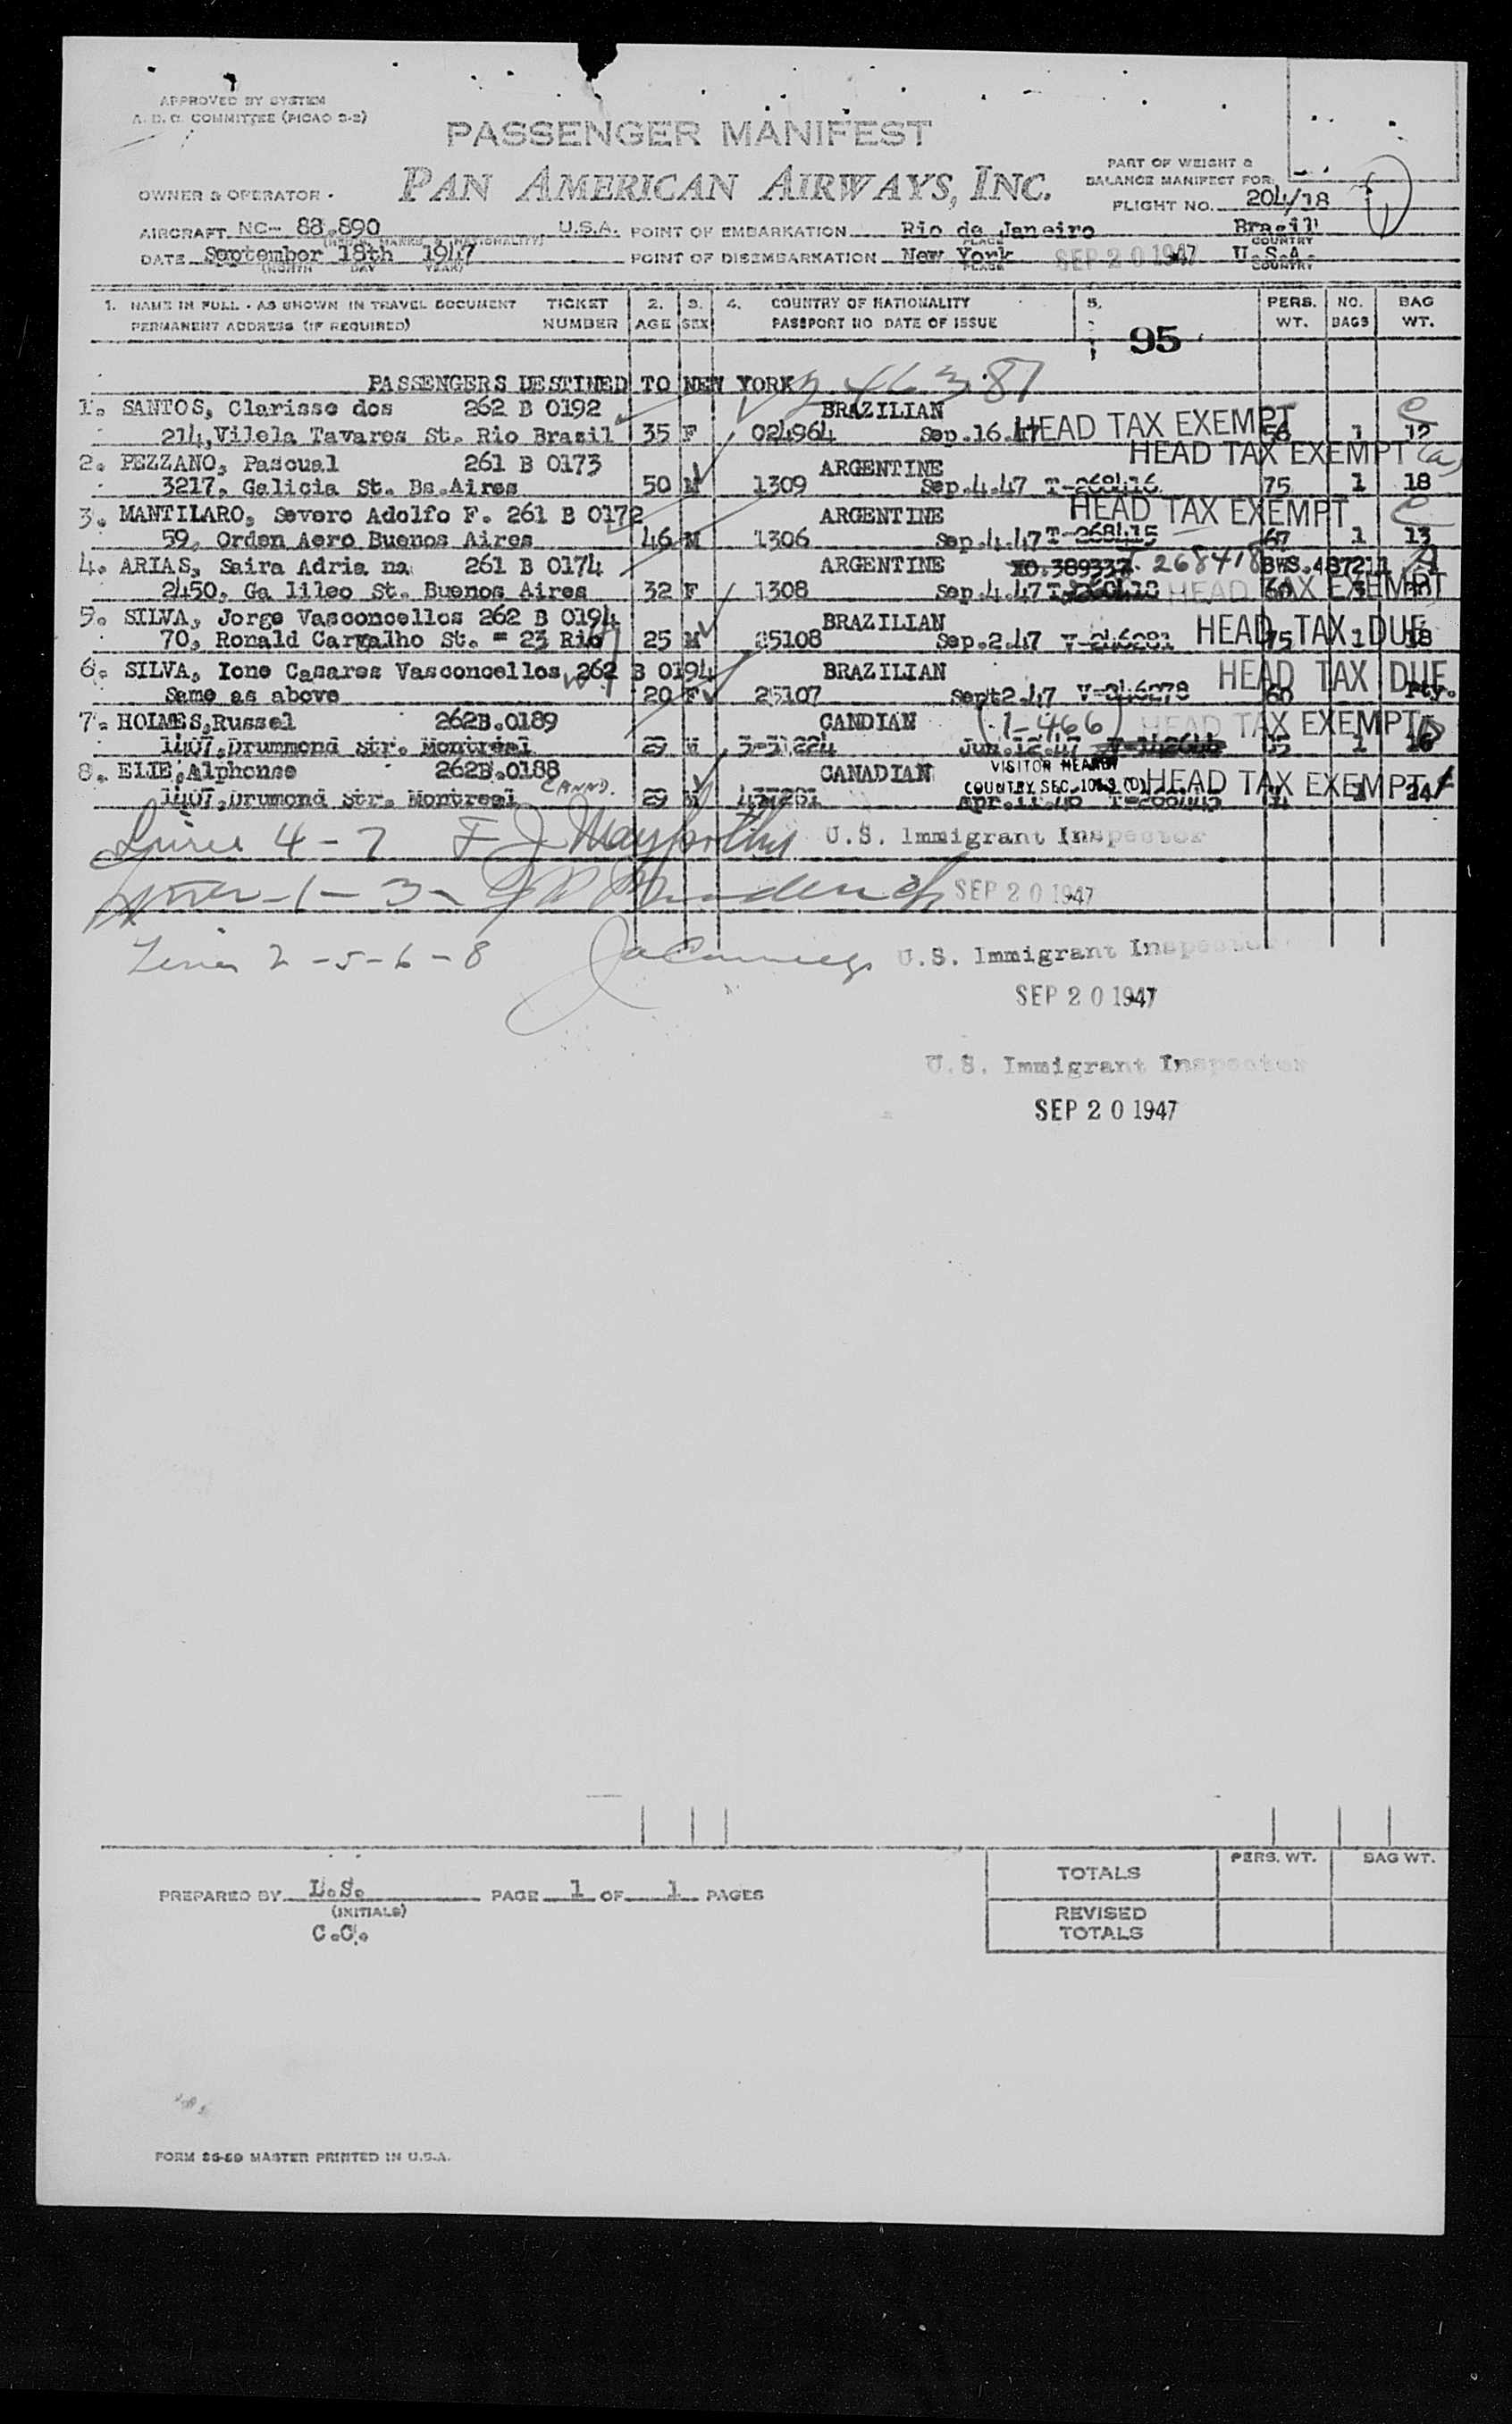 APPROVED BY SYSTEM
A. D. C. COMMITTEE (PICAO S-2)
PASSENGER MANIFEST
PAN AMERICAN AIRWAYS, INC.
PART OF WEIGHT &
BALANCE MANIFEST FOR:
OWNER & OPERATOR -
FLIGHT NO. 204/18
AIRCRAFT NC- 88.890 U.S.A. POINT OF EMBARKATION Rio de Janeiro Brazil
PLACE COUNTRY
DATE September 18th 1947 POINT OF DISEMBARKATION New York SEP 20 1947 U.S.A.
(MONTH DAY YEAR) PLACE COUNTRY
1. NAME IN FULL - AS SHOWN IN TRAVEL DOCUMENT TICKET 2. 3. 4. COUNTRY OF NATIONALITY 5. PERS. NO. BAG
PERMANENT ADDRESS (IF REQUIRED) NUMBER AGE SEX PASSPORT NO DATE OF ISSUE WT. BAGS WT.
95
PASSENGERS DESTINED TO NEW YORK
1. SANTOS, Clarisse dos 262 B 0192 BRAZILIAN
214,Vilela Tavares St. Rio Brazil 35 F 024964 Sep.16.47 HEAD TAX EXEMPT 1 12
2. PEZZANO, Pascual 261 B 0173 ARGENTINE HEAD TAX EXEMPT
3217, Galicia St. Bs.Aires 50 M 1309 Sep.4.47 T-268416 75 1 18
3. MANTILARO, Severo Adolfo F. 261 B 0172 ARGENTINE HEAD TAX EXEMPT
59, Orden Aero Buenos Aires 46 M 1306 Sep.4.47 T-268415 67 1 13
4. ARIAS, Saira Adria na 261 B 0174 ARGENTINE 268418
2450, Ga lileo St. Buenos Aires 32 F 1308 Sep.4.47 HEAD TAX EXEMPT
5. SILVA, Jorge Vasconcellos 262 B 0194 BRAZILIAN
70, Ronald Carvalho St. = 23 Rio 25 M 25108 Sep.2.47 V-246281 HEAD TAX DUE 75 1 18
6. SILVA, Ione Casares Vasconcellos,262 B 0194 BRAZILIAN HEAD TAX DUE
Same as above 20 F 25107 Sept2.47 V-246278 60
7. HOLMES,Russel 262B.0189 CANDIAN (1-466) HEAD TAX EXEMPT
1407,Drummond Str. Montreal 29 M 5-31224 Jun.12.47 1 16
8. ELIE,Alphonse 262B.0188 CANADIAN VISITOR
COUNTRY SEC. HEAD TAX EXEMPT
1407,Drumond Str. Montreal 29 M 24
Lines 4 - 7 U.S. Immigrant Inspector
1 - 3 SEP 20 1947
Lines 2 - 5 - 6 - 8 U.S. Immigrant Inspector
SEP 20 1947
U.S. Immigrant Inspector
SEP 20 1947
PERS. WT. BAG WT.
TOTALS
PREPARED BY L.S. PAGE 1 OF 1 PAGES
(INITIALS)
C.C.
REVISED
TOTALS
FORM 36-59 MASTER PRINTED IN U.S.A.